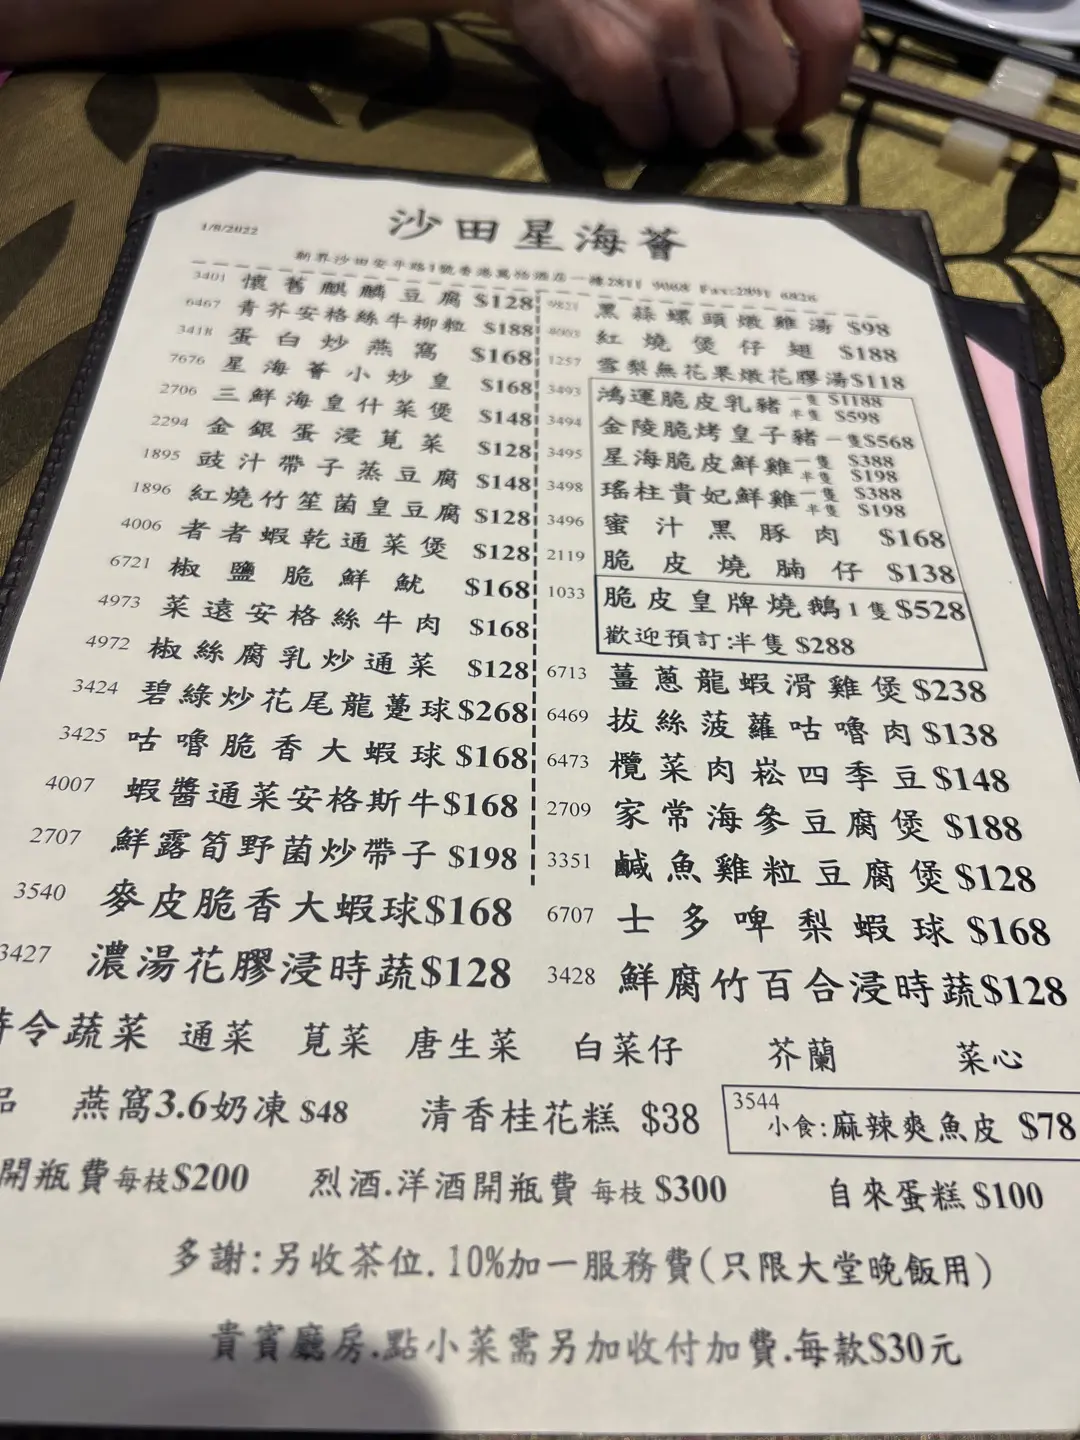 1/8/2022
沙田星海薈
新界沙田安平路1號香港萬怡酒店一樓2811 9068 Fax:2891 6828
3401 懷舊麒麟豆腐 $128
6467 青芥安格絲牛柳粒 $188
3418 蛋白炒燕窩 $168
7676 星海薈小炒皇 $168
2706 三鮮海皇什菜煲 $148
2294 金銀蛋浸莧菜 $128
1895 豉汁帶子蒸豆腐 $148
1896 紅燒竹笙菌皇豆腐 $128
4006 者者蝦乾通菜煲 $128
6721 椒鹽脆鮮魷 $168
4973 菜遠安格絲牛肉 $168
4972 椒絲腐乳炒通菜 $128
3424 碧綠炒花尾龍躉球 $268
3425 咕嚕脆香大蝦球 $168
4007 蝦醬通菜安格斯牛 $168
2707 鮮露筍野菌炒帶子 $198
3540 麥皮脆香大蝦球 $168
3427 濃湯花膠浸時蔬 $128
9821 黑蒜螺頭燉雞湯 $98
紅燒煲仔翅 $188
1257 雪梨無花果燉花膠湯 $118
3493 鴻運脆皮乳豬 一隻 $1188
半隻 $598
3494 金陵脆烤皇子豬 一隻 $568
3495 星海脆皮鮮雞 一隻 $388
半隻 $198
3498 瑤柱貴妃鮮雞 一隻 $388
半隻 $198
3496 蜜汁黑豚肉 $168
2119 脆皮燒腩仔 $138
1033 脆皮皇牌燒鵝1隻 $528
歡迎預訂:半隻 $288
6713 薑蔥龍蝦滑雞煲 $238
6469 拔絲菠蘿咕嚕肉 $138
6473 欖菜肉崧四季豆 $148
2709 家常海參豆腐煲 $188
3351 鹹魚雞粒豆腐煲 $128
6707 士多啤梨蝦球 $168
3428 鮮腐竹百合浸時蔬 $128
時令蔬菜 通菜 莧菜 唐生菜 白菜仔 芥蘭 菜心
品 燕窩3.6奶凍 $48 清香桂花糕 $38 3544 小食:麻辣爽魚皮 $78
開瓶費 每枝 $200 烈酒.洋酒開瓶費 每枝 $300 自來蛋糕 $100
多謝:另收茶位.10%加一服務費(只限大堂晚飯用)
貴賓廳房.點小菜需另加收付加費.每款$30元